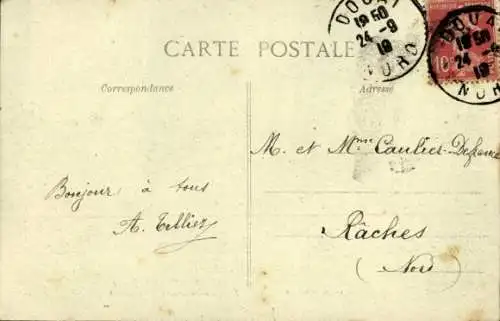 DOUAI
18 50
24 - 9
19
NORD
DOUAI
18 50
24 - 9
19
NORD
10
CARTE POSTALE
Correspondance
Adresse
M. et Mme Caulier-Defrance
Bonjour à tous
A. Tellier
Râches
(Nord)